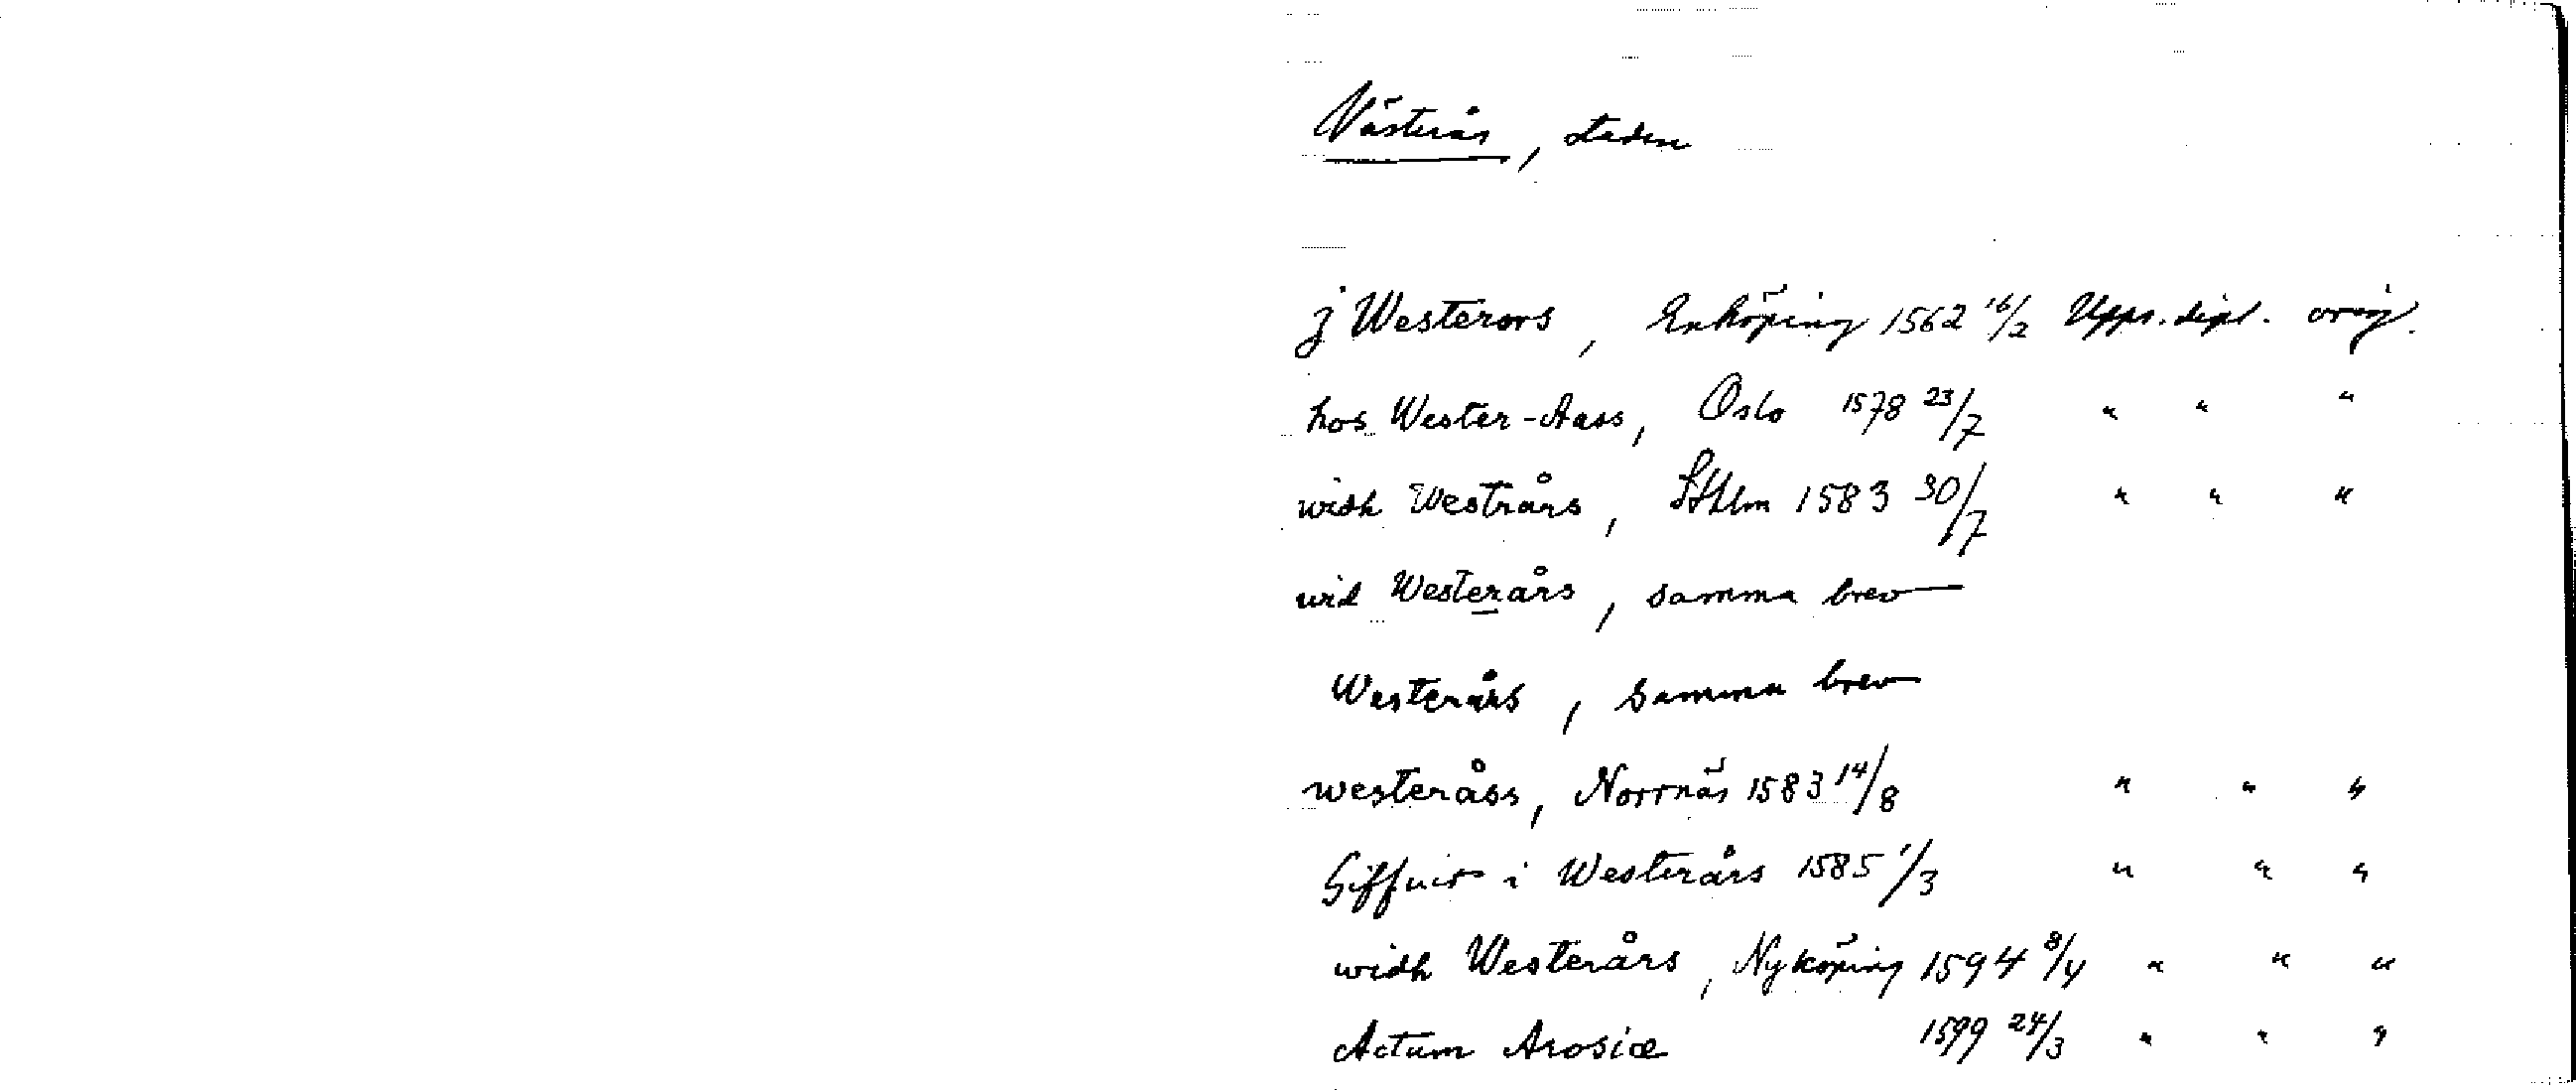 Västerås, staden
j Westerors, Enköping 1562 16/2 Upps. dipl. orig.
hos Wester-Aass, Oslo 1578 23/7 " " "
widh Westrårs, Sthlm 1583 30/7 " " "
wid Westerårs, samma brev
Westerårs, samma brev
westeråss, Norrnäs 1583 14/8 " " "
Giffuit i Westerårs 1585 1/3 " " "
widh Westerårs, Nyköping 1594 8/4 " " "
Actum Arosiæ 1599 24/3 " " "